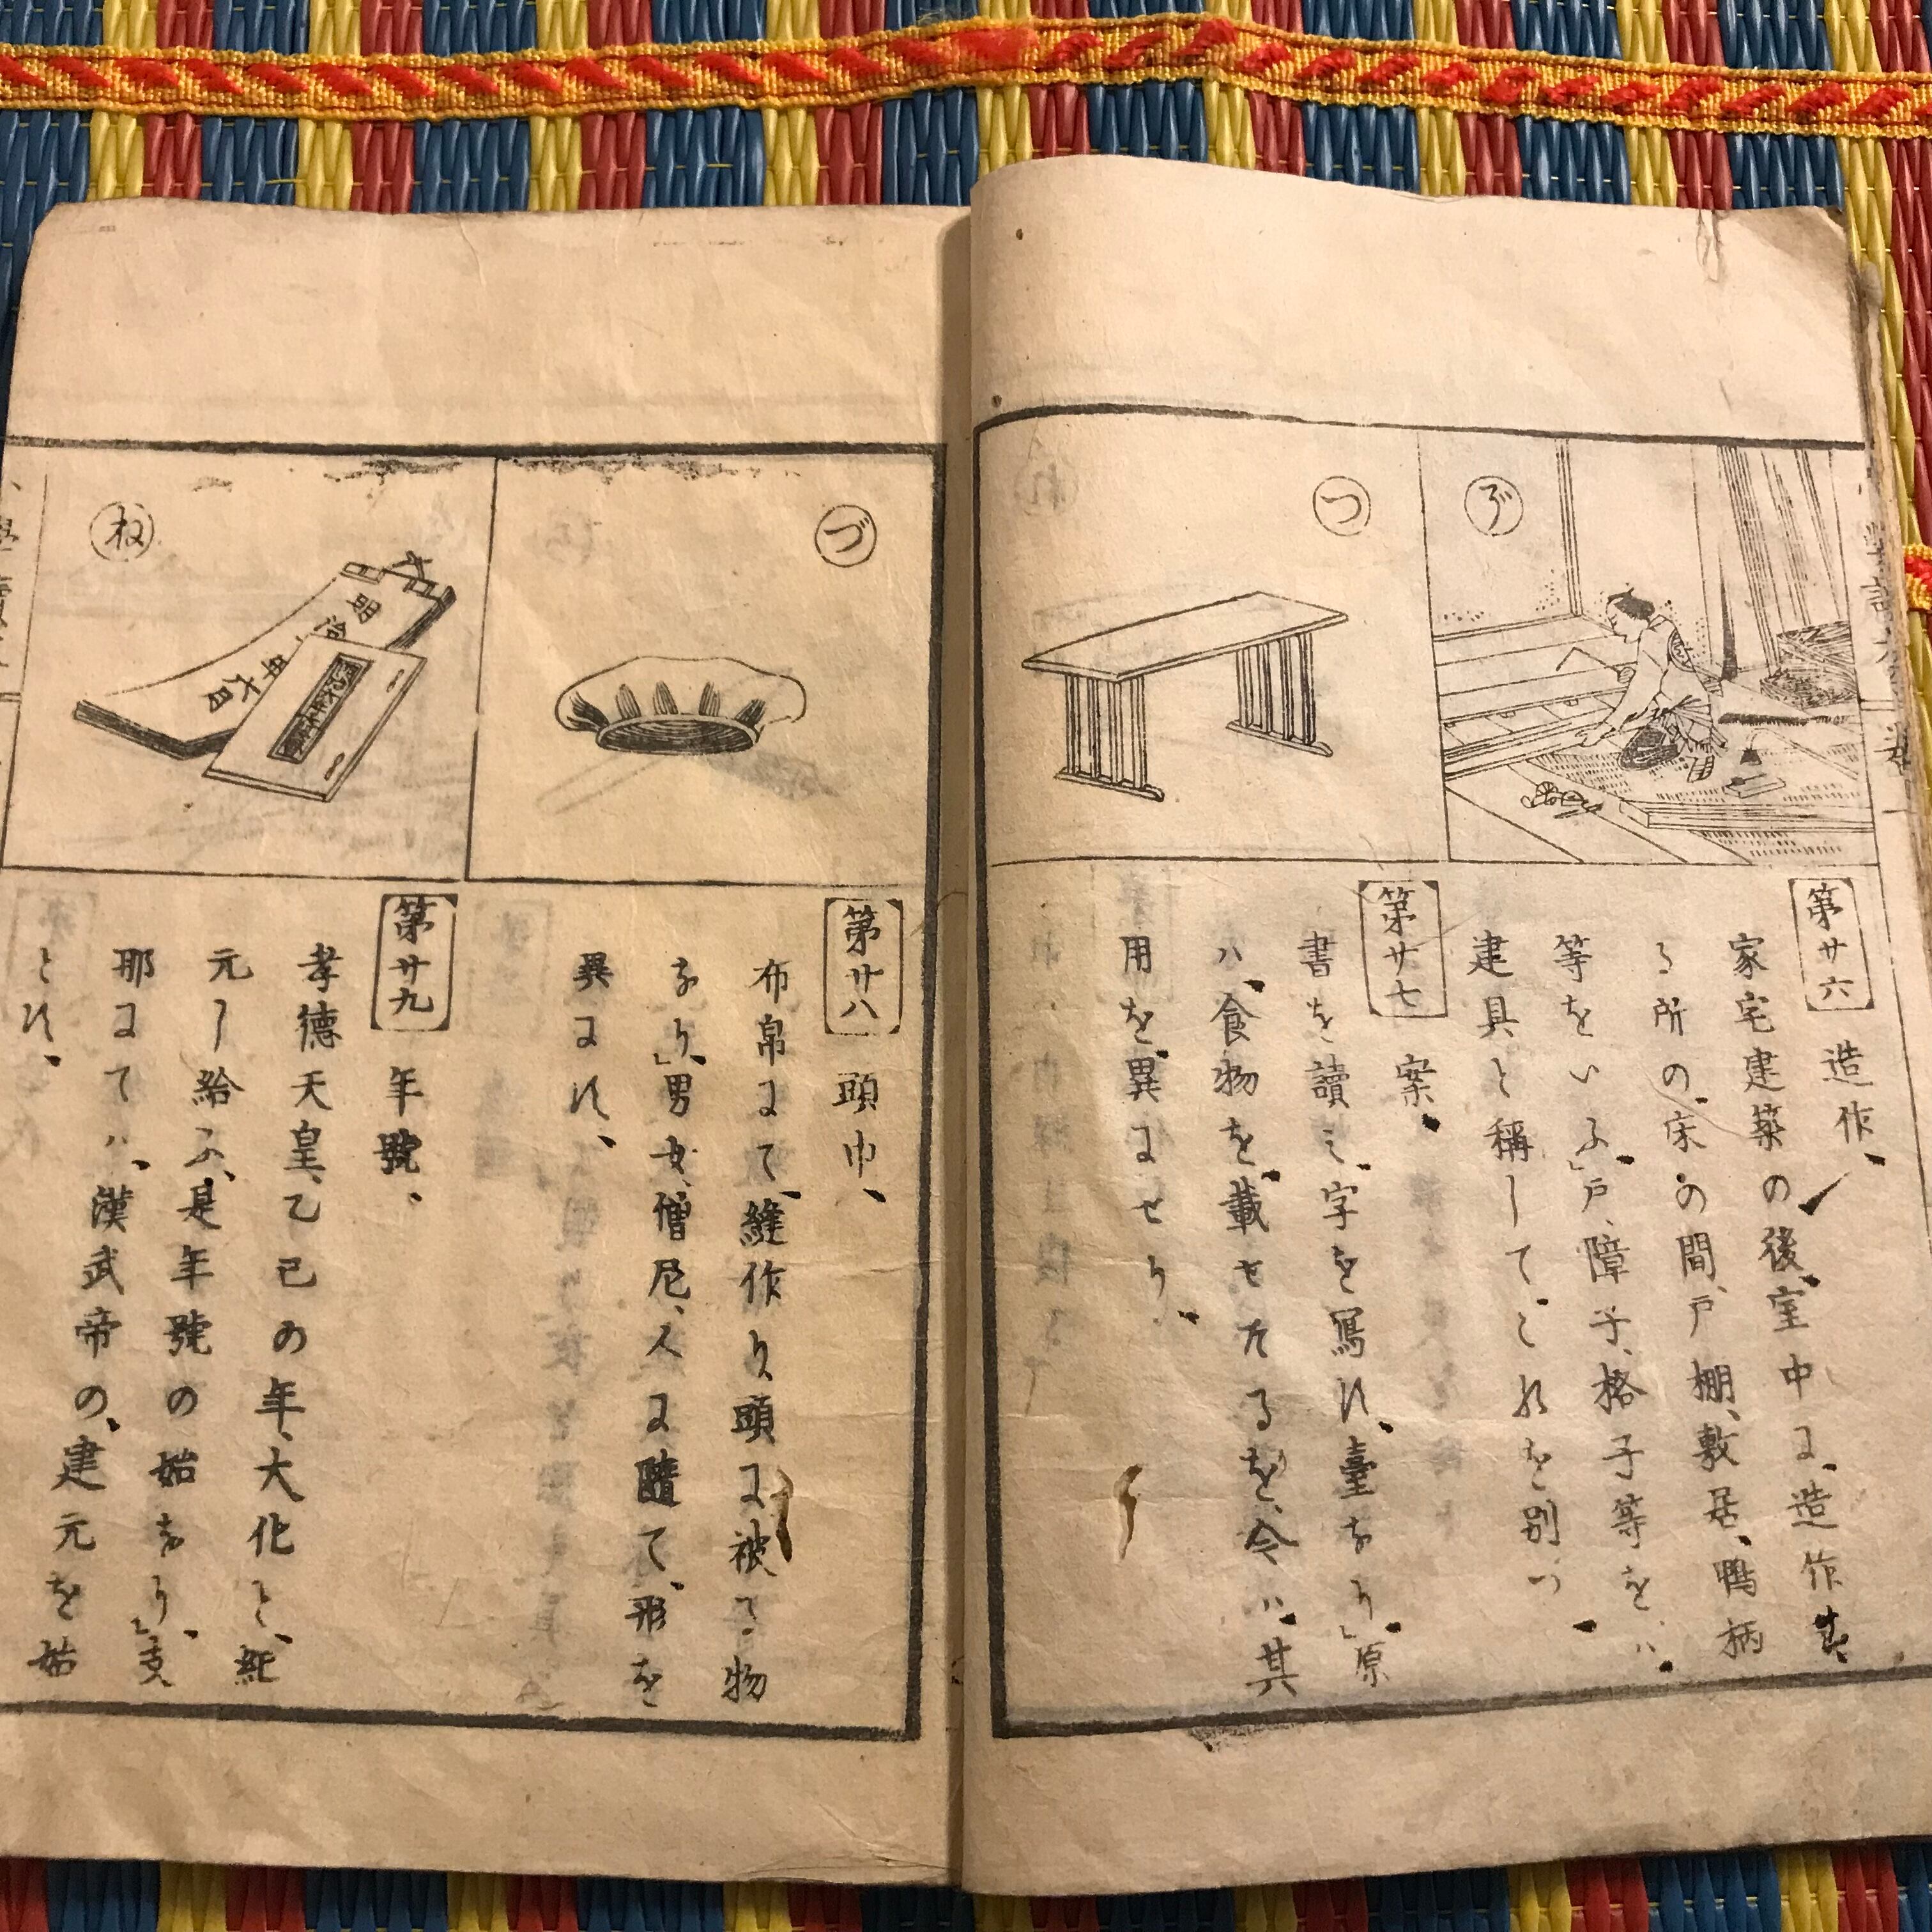 つ
第廿六 造作、
家宅建築の後、室中に、造作す
る所の、床の間、戸棚、敷居、鴨柄
等をいふ、」戸、障子、格子等を、ハ、
建具と稱して、これを別つ、
第廿七 案、
書を讀み、字を寫す、臺なり、」原
ハ、食物を、載せたるを、今ハ、其
用を、異にせり、
づ
ね
明治 年六月
第廿八 頭巾、
布帛にて、縫作り、頭に被る物
なり、」男女、僧尼、人に隨て、形を
異にす、
第廿九 年號、
孝德天皇、乙巳の年、大化と、紀
元し給ふ、是年號の始なり、」支
那にてハ、漢武帝の、建元を始
とす、